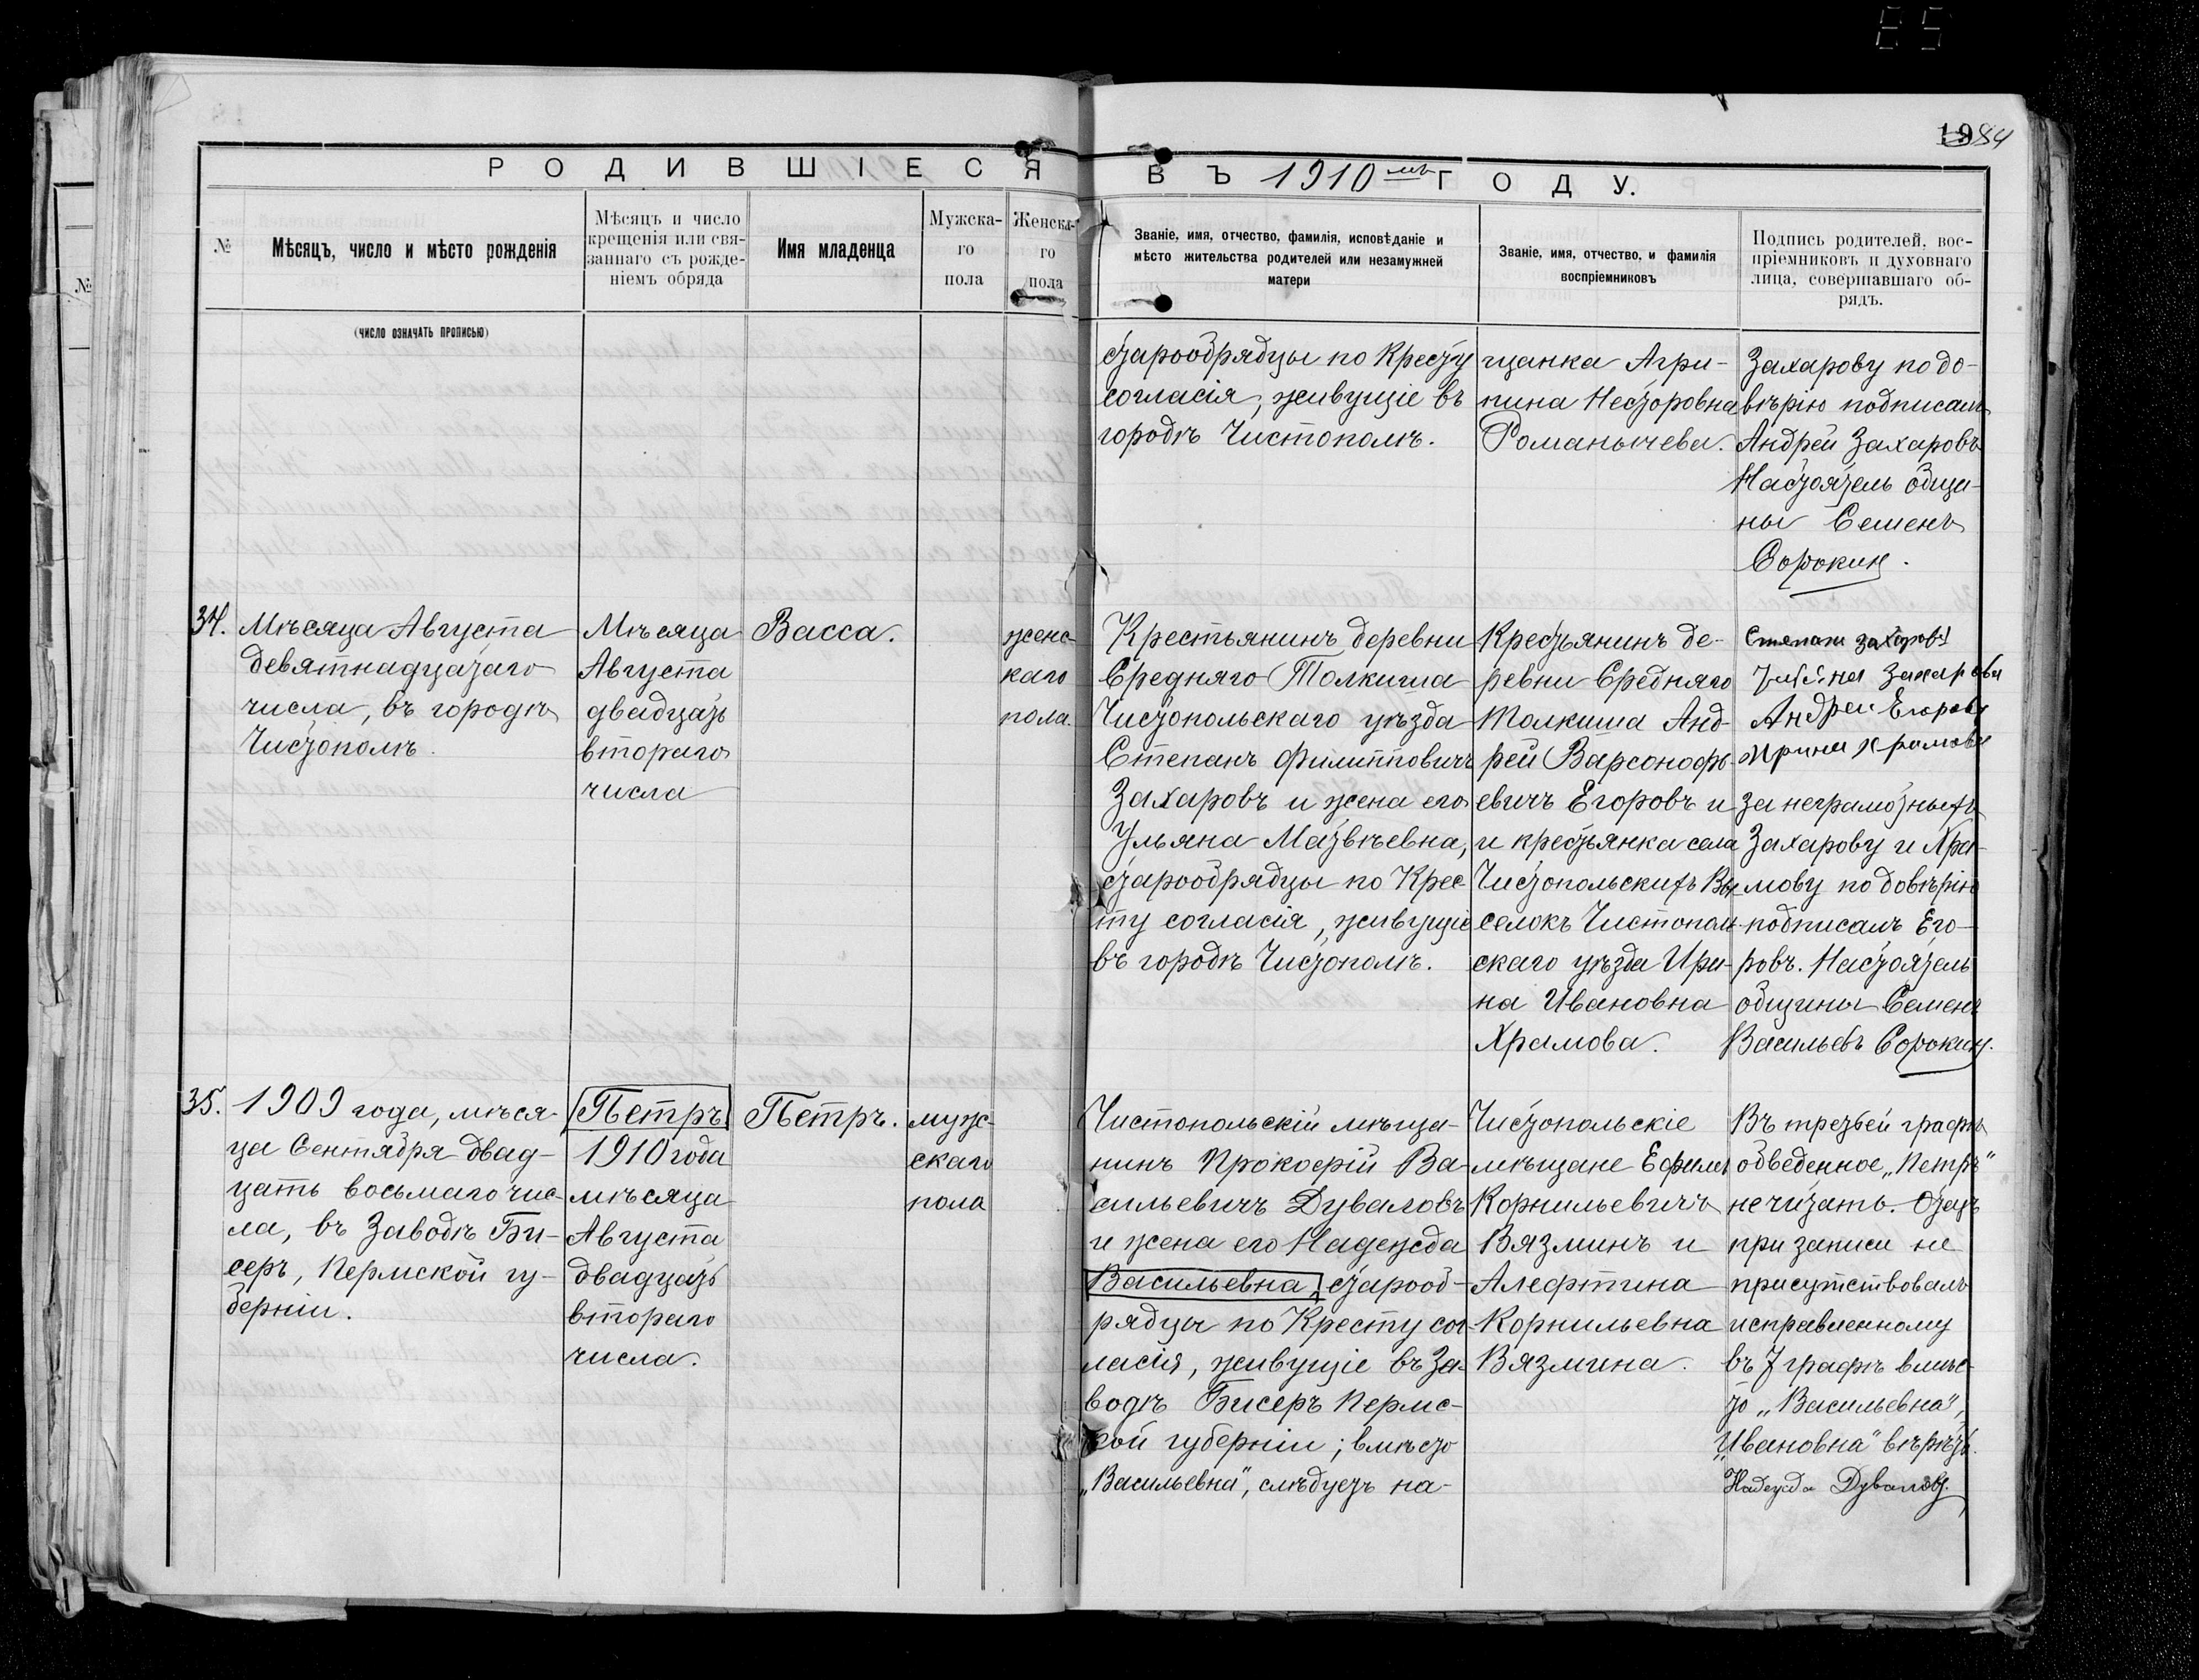 1984
РОДИВШІЕСЯ ВЪ 1910 мъ ГОДУ.
№
Мѣсяцъ, число и мѣсто рожденія
Мѣсяцъ и число
крещенія или свя-
заннаго съ рожде-
ніемъ обряда
Имя младенца
Мужска-
го
пола
Женска-
го
пола
Званіе, имя, отчество, фамилія, исповѣданіе и
мѣсто жительства родителей или незамужней
матери
Званіе, имя, отчество, и фамилія
воспріемниковъ
Подпись родителей, вос-
пріемниковъ и духовнаго
лица, совершавшаго об-
рядъ.
(число означать прописью)
старообрядцы по Кресту
согласія, живущіе въ
городѣ Чистополѣ.
щанка Агри-
пина Несторовна
Романычева.
Захарову по до-
вѣрію подписалъ
Андрей Захаровъ
Настоятель общи-
ны Семенъ
Сорокин.
34.
Мѣсяца Августа
девятнадцатаго
числа, въ городѣ
Чистополѣ.
Мѣсяца
Августа
двадцать
втораго
числа
Васса.
женс-
каго
пола.
Крестьянинъ деревни
Средняго Толкиша
Чистопольскаго уѣзда
Степанъ Филипповичъ
Захаровъ и жена его
Ульяна Матвѣевна,
старообрядцы по Крес-
ту согласія, живущіе
въ городѣ Чистополѣ.
Крестьянинъ де-
ревни Средняго
Толкиша Анд-
рей Варсонофь-
евичъ Егоровъ и
и крестьянка села
Чистопольскихъ Вы-
селокъ Чистополь-
скаго уѣзда Ири-
на Ивановна
Храмова.
Степанъ Захаровъ
Ульяна Захарова
Андрей Егоровъ
Ирина Храмова
за неграмотныхъ
Захарову и Хра-
мову по довѣрію
подписалъ Его-
ровъ. Настоятель
общины Семенъ
Васильевъ Сорокин.
35.
1909 года, мѣся-
ца Сентября двад-
цать восьмаго чис-
ла, въ Заводѣ Би-
серъ, Пермской гу-
берніи.
Петръ
1910 года
мѣсяца
Августа
двадцать
втораго
числа.
Петръ.
муж-
скаго
пола
Чистопольскій мѣща-
нинъ Прокофій Ва-
сильевичъ Дуваловъ
и жена его Надежда
Васильевна, старооб-
рядцы по Кресту сог-
ласія, живущіе въ За-
водѣ Бисеръ Пермс-
кой губерніи; вмѣсто
„Васильевна", слѣдуетъ на-
Чистопольскіе
мѣщане Ефимъ
Корнильевичъ
Вязминъ и
Алефтина
Корнильевна
Вязмина.
Въ третьей графѣ
обведенное „Петръ"
не читать. Отецъ
при записи не
присутствовалъ
исправленному
въ 7 графѣ вмѣс-
то „Васильевна",
„Ивановна" вѣрить.
Надежда Дувалова.